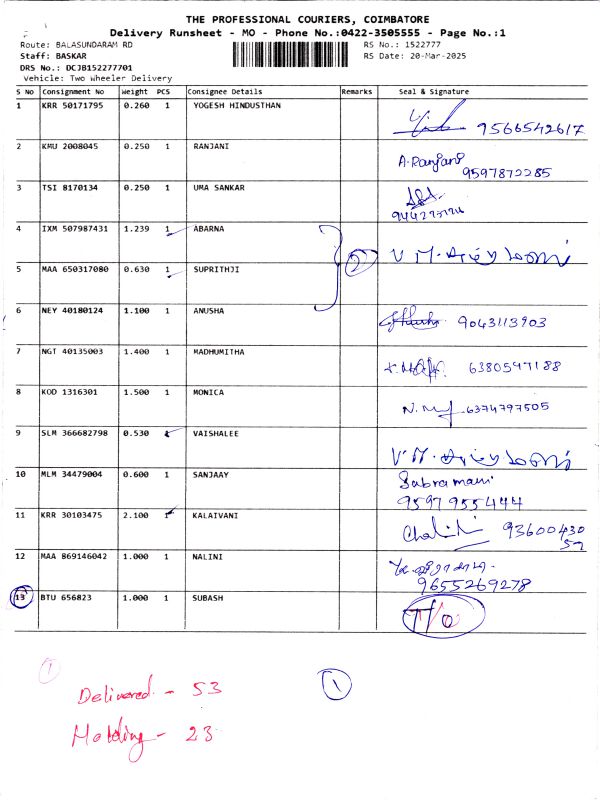 THE PROFESSIONAL COURIERS, COIMBATORE
Delivery Runsheet - MO - Phone No.:0422-3505555 - Page No.:1
Route: BALASUNDARAM RD RS No.: 1522777
Staff: BASKAR RS Date: 20-Mar-2025
DRS No.: DCJB152277701
Vehicle: Two Wheeler Delivery
S No Consignment No Weight PCS Consignee Details Remarks Seal & Signature
1 KRR 50171795 0.260 1 YOGESH HINDUSTHAN 9566542617
2 KMU 2008045 0.250 1 RANJANI A.Ranjani
9597872285
3 TSI 8170134 0.250 1 UMA SANKAR
4 IXM 507987431 1.239 1 ABARNA
2 V M.
5 MAA 650317080 0.630 1 SUPRITHJI
6 NEY 40180124 1.100 1 ANUSHA 9043113903
7 NGT 40135003 1.400 1 MADHUMITHA 6380597188
8 KOD 1316301 1.500 1 MONICA 6374797505
9 SLM 366682798 0.530 1 VAISHALEE V M.
10 MLM 34479004 0.600 1 SANJAAY Subramani
9597 955444
11 KRR 30103475 2.100 1 KALAIVANI 93600430
57
12 MAA 869146042 1.000 1 NALINI
9655269278
13 BTU 656823 1.000 1 SUBASH T/O
1
1
Delivered - 53
Holding - 23